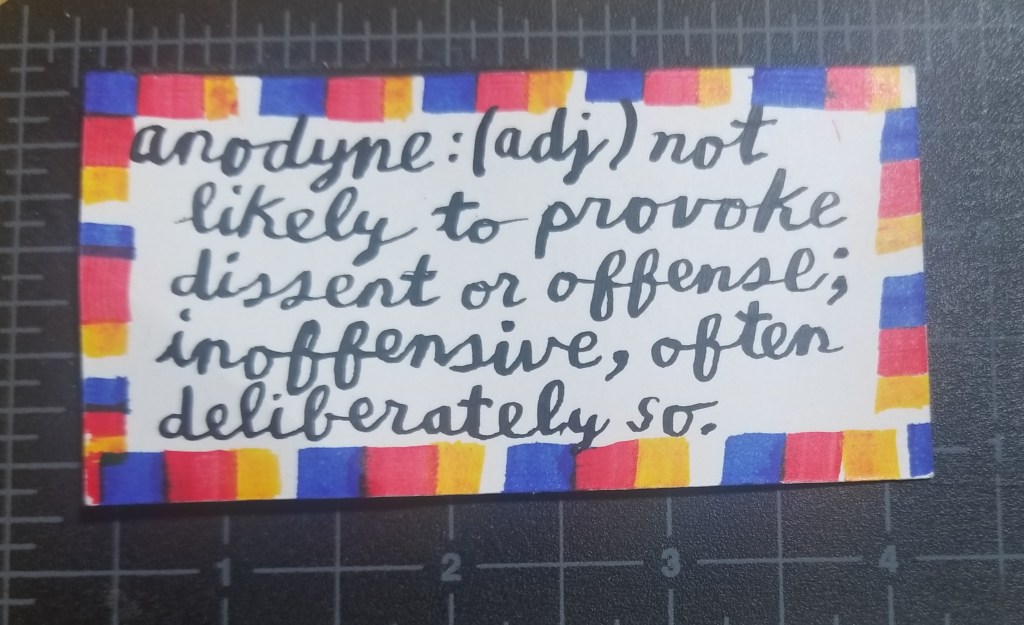 anodyne: (adj) not
likely to provoke
dissent or offense;
inoffensive, often
deliberately so.
1 2 3 4